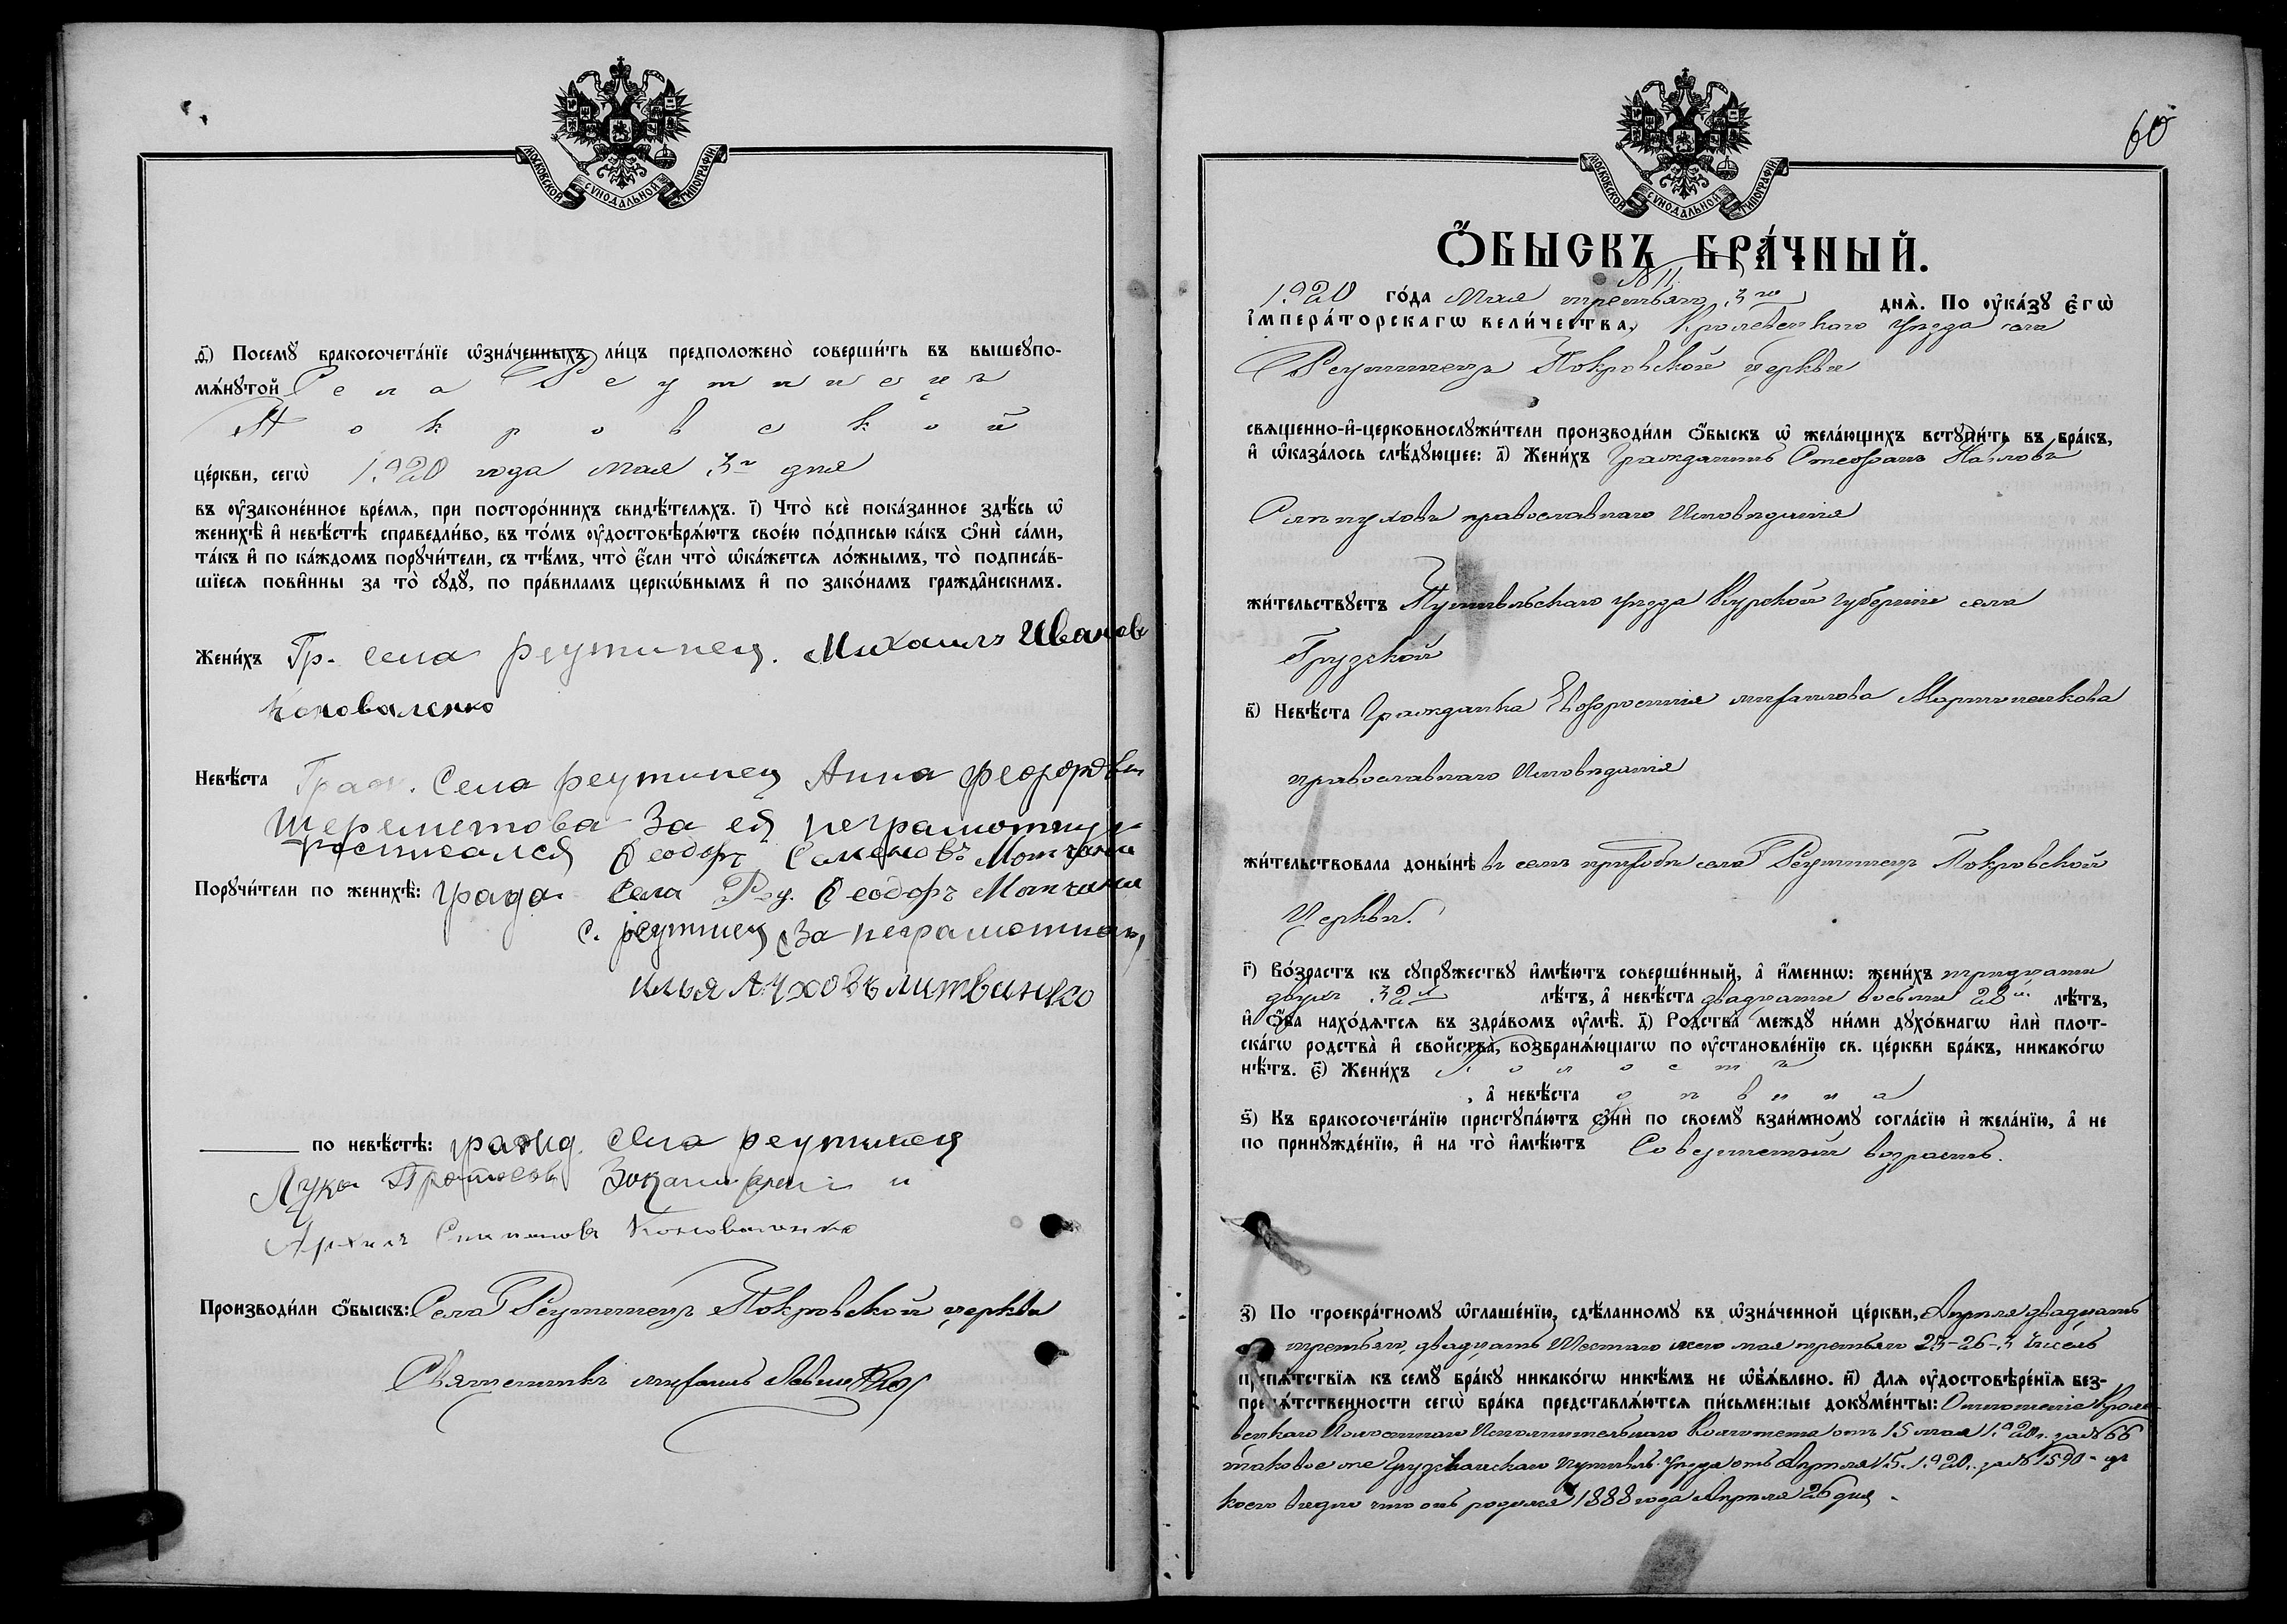 МОСКОВСКОЙ СѴНОДАЛЬНОЙ ТИПОГРАФІИ
д҃і) Посемꙋ бракосочета́нїе ѡ҆зна́ченныхъ ли́цъ предположено̀ соверши́ть въ вышеꙋпо-
мѧ́нꙋтой Села Реутинецъ
Покровской
це́ркви, сегѡ̀ 1920 года Мая 3го дня
въ ᲂу҆законе́нное вре́мѧ, при посторо́ннихъ свидѣ́телѧхъ. і҃) Что̀ всѐ пока́занное здѣ́сь ѡ҆
женихѣ̀ и҆ невѣ́стѣ справедли́во, въ то́мъ ᲂу҆достовѣрѧ́ютъ свое́ю по́дписью ка́къ ѻ҆нѝ са́ми,
та́къ и҆ по ка́ждомъ порꙋчи́тели, съ тѣ́мъ, что̀ є҆́сли что̀ ѡ҆ка́жетсѧ ло́жнымъ, то̀ подписа́в-
шїесѧ пови́нны за то̀ сꙋдꙋ̀, по пра́виламъ церкѡ́внымъ и҆ по зако́намъ гражда́нскимъ.
Жени́хъ Гр. села реутинец. Михаилъ Иванов
Коноваленко
Невѣ́ста Граж. Села реутинец Анна феодоровн
Шереметова За ей неграмотную
росписался Ѳеодоръ Семеновъ
Порꙋчи́тели по женихѣ̀: гражд. Села Реу. Ѳеодоръ
с. реутинец За неграмотнаго
илья литвиненко
по невѣ́стѣ: гражд. села реутинец
Лука и
Степановъ Коноваленко
Производи́ли ѻ҆́быскъ: Села Реутинецъ Покровской церкви
Священникъ
60
МОСКОВСКОЙ СѴНОДАЛЬНОЙ ТИПОГРАФІИ
Ѻ҆́БЫСКЪ БРА́ЧНЫЙ.
№ 11.
1920 го́да Мая третьяго 3го днѧ̀. По ᲂу҆ка́зꙋ є҆гѡ̀
і҆мпера́торскагѡ вели́чества, Кролевецкаго уѣзда села
Реутинецъ Покровской церкви
свѧщенно-и҆-церковнослꙋжи́тели производи́ли ѻ҆́быскъ ѡ҆ жела́ющихъ встꙋпи́ть въ бра́къ,
и҆ ѡ҆каза́лось слѣ́дꙋющее: а҃) Жени́хъ Гражданинъ Стефанъ Павловъ
православнаго Исповѣданія
жи́тельствꙋетъ Путивльскаго уѣзда Курской губерніи села
Грузской
в҃) Невѣ́ста Гражданка Евфросинія Мартиненкова
православнаго Исповѣданія
жи́тельствовала доны́нѣ въ семъ приходѣ села Реутинецъ Покровской
Церкви.
г҃) Во́зрастъ къ сꙋпрꙋ́жествꙋ и҆мѣ́ютъ соверше́нный, а҆ и҆́меннѡ: жени́хъ тридцати
двухъ 32х лѣ́тъ, а҆ невѣ́ста двадцати восьми 28и лѣ́тъ,
и҆ ѻ҆́ба нахо́дѧтсѧ въ здра́вомъ ᲂу҆мѣ̀. д҃) Родства̀ междꙋ̀ ни́ми дꙋхо́внагѡ и҆лѝ плот-
ска́гѡ родства̀ и҆ свойства̀, возбранѧ́ющагѡ по ᲂу҆становле́нїю св. це́ркви бра́къ, никако́гѡ
нѣ́тъ. є҃) Жени́хъ холостъ
, а҆ невѣ́ста дѣвица
ѕ҃) Къ бракосочета́нїю пристꙋпа́ютъ ѻ҆нѝ по своемꙋ̀ взаи́мномꙋ согла́сїю и҆ жела́нїю, а҆ не
по принꙋжде́нїю, и҆ на то̀ и҆мѣ́ютъ возрастъ.
з҃) По троекра́тномꙋ ѡ҆глаше́нїю, сдѣ́ланномꙋ въ ѡ҆зна́ченной це́ркви, Апрѣля двадцать
третьяго, двадцать Шестаго и сего мая третьяго 23-26-3 Чиселъ
препѧ́тствїѧ къ семꙋ̀ бра́кꙋ никако́гѡ никѣ́мъ не ѡ҆б̾ѧ́влено. и҃) Длѧ ᲂу҆достовѣре́нїѧ без-
препѧ́тственности сегѡ̀ бра́ка представлѧ́ютсѧ пи́сьменные докꙋме́нты: Отношеніе Кроле-
вецкаго Волостнаго Исполнительнаго Комитета отъ 15 мая 1920 г. за № 66
таковое же Грузскаго Путивль. Уѣзда отъ Апрѣля 15. 1920. за № 1590 - изъ
коего видно что онъ родился 1888 года Апрѣля 26 дня.